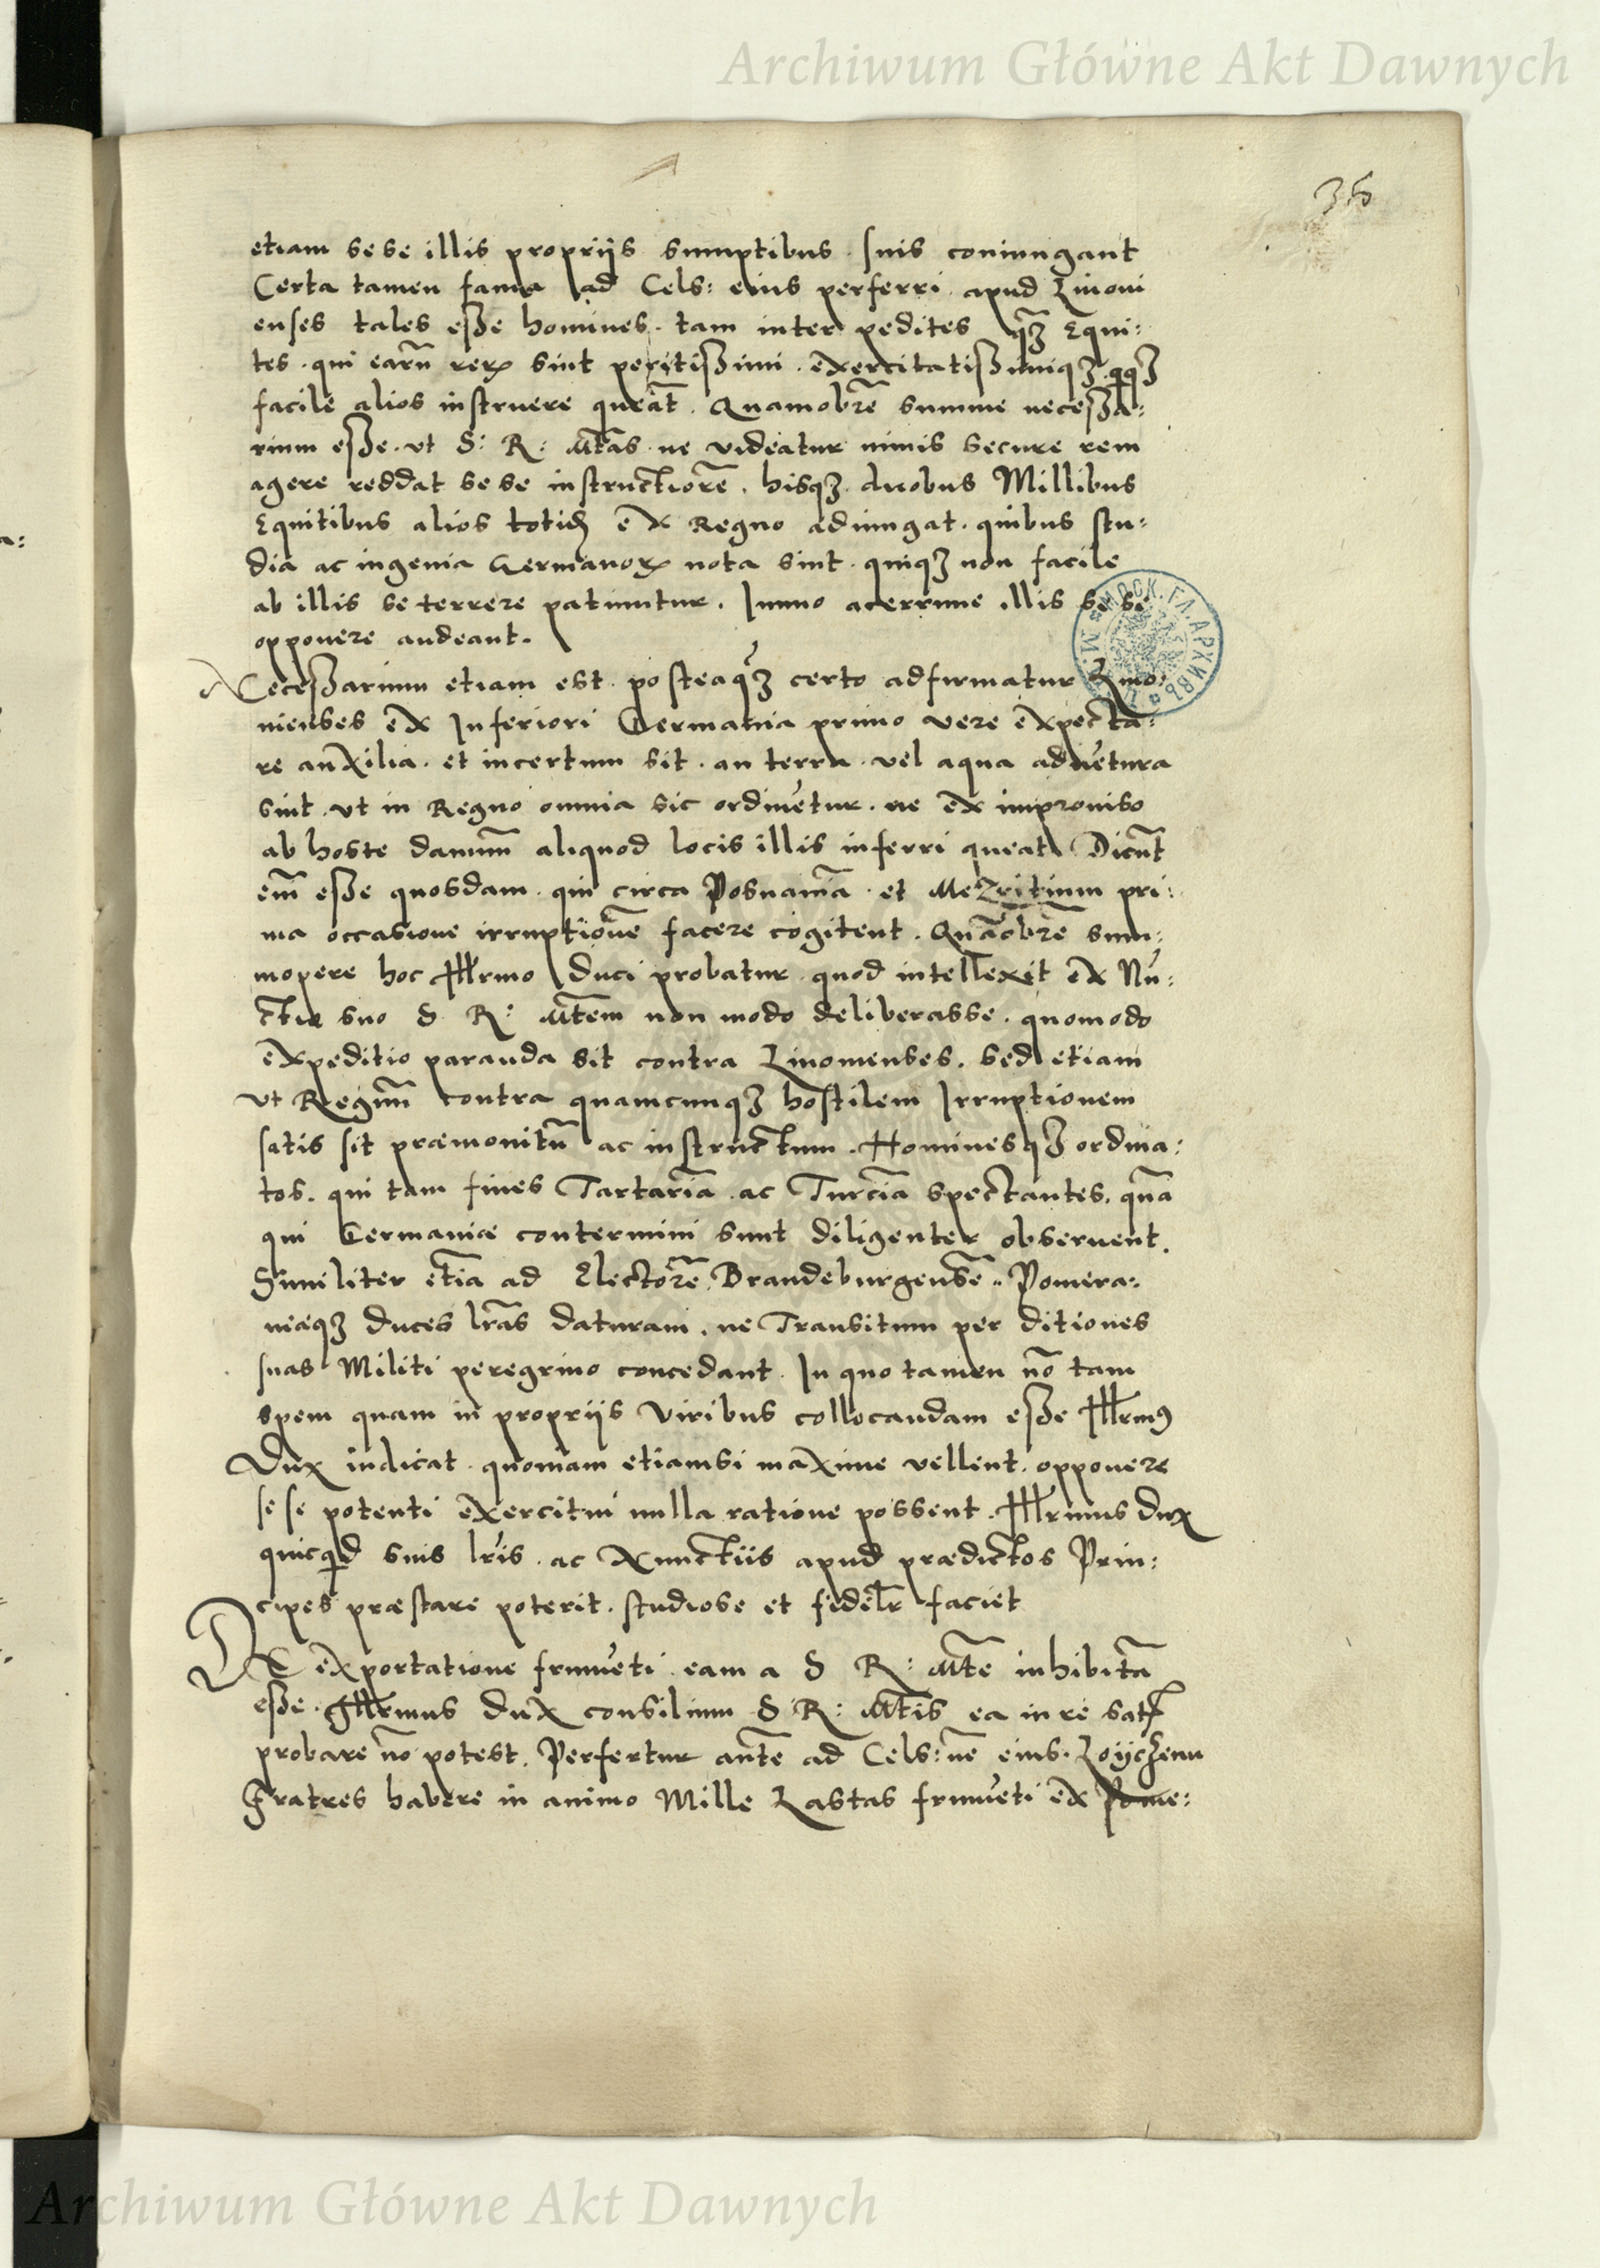 Archiwum Główne Akt Dawnych
36
etiam sese illis proprijs sumptibus suis coniungant
Certa tamen fama ad Cels: eius perferri apud Liuoni
enses tales eße homines. tam inter pedites qȝ Equi:
tes. qui earū rerꝝ sint peritißimi. exercitatißimiqȝ
facile alios instruere queāt. Quamobrē summe neceßa:
rium eße. vt S: R: Mtās ne videatur nimis secure rem
agere reddat sese instructiorē. hisqȝ duobus Millibus
Equitibus alios totid ex Regno adiungat. quibus stu:
dia ac ingenia Germanorꝝ nota sint. quiqȝ non facile
ab illis se terrere patiuntur. Immo acerrime illis sese
opponere audeant.
Neceßarium etiam est. posteaqȝ certo adfirmatur Liuo:
nienses ex Inferiori Germania primo vere expecta:
re auxilia. et incertum sit. an terra vel aqua aduētura
sint. vt in Regno omnia sic ordinētur. ne ex improuiso
ab hoste damnū aliquod locis illis inferri queat. Dicūt
em̄ eße quosdam. qui circa Posnaniā et Mezritium pri:
ma occasione irruptionē facere cogitent. Quāobrē sum:
mopere hoc Illrmo Duci probatur quod intellexit ex Nū:
ctio suo S R: Mtēm non modo deliberasse. quomodo
expeditio paranda sit contra Liuonienses. sed etiam
vt Regnū contra quamcunqȝ hostilem Irruptionem
satis sit præmonitū ac instructum. Hominesqȝ ordina:
tos. qui tam fines Tartariā ac Turciā spectantes. quā
qui Germaniæ contermini sunt diligenter obseruent.
Similiter etiā ad Electorē Brandeburgensē Pomera:
niæqȝ duces lrās daturam. ne Transitum per ditiones
suas Militi peregrino concedant. In quo tamen nō tam
spem quam in proprijs viribus collocandam eße Illrmꝰ
Dux iudicat. quoniam etiamsi maxime vellent. opponere
sese potenti exercitui nulla ratione possent. Illrmus Dux
quicqd suis lrīs. ac Nunctiis apud prædictos Prin:
cipes præstare poterit. studiose et fidelr faciet
De exportatione frumēti eam a S R: Mtē inhibitā
eße. Illrmus Dux consilium S R: Mtīs ea in re satis
probare nō potest. Perfertur autē ad Cels:nē eius. Loijczenn
Fratres habere in animo Mille Lastas frumēti ex Pome:
Archiwum Główne Akt Dawnych